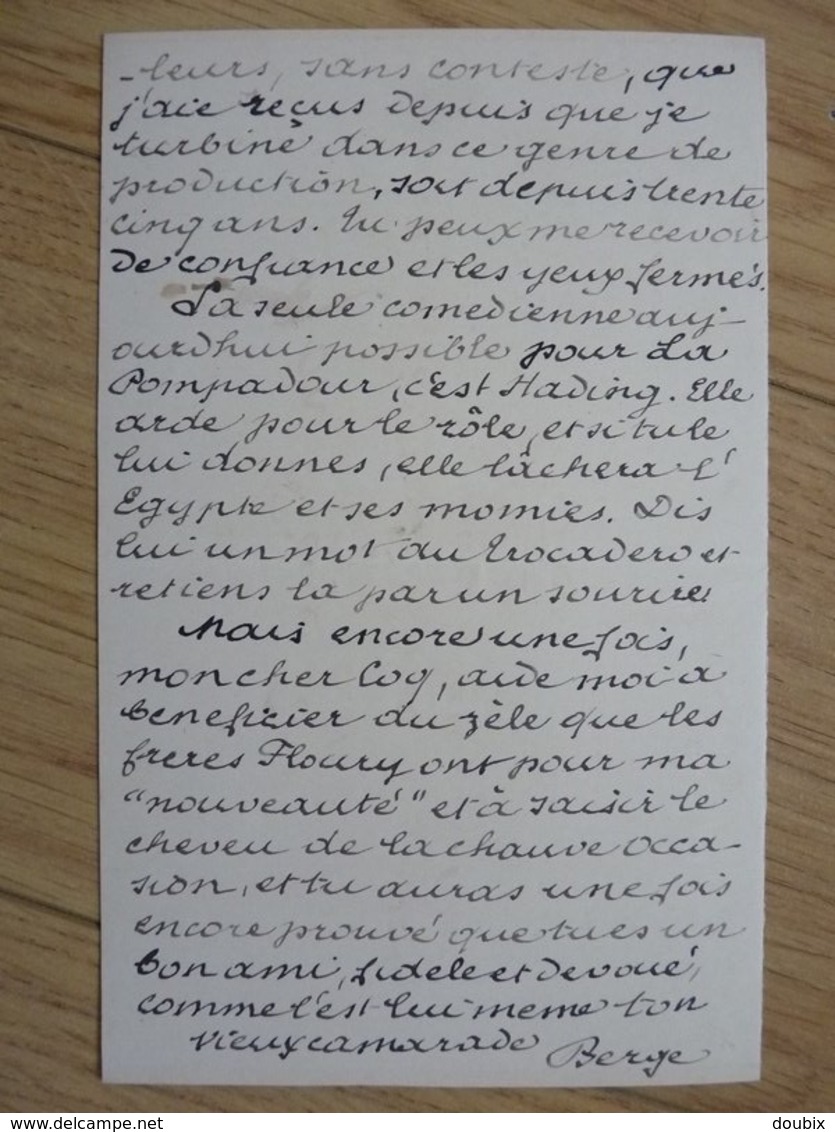 -leurs, sans conteste, que
j'aie reçus depuis que je
turbine dans ce genre de
production, soit depuis trente
cinq ans. Tu peux me recevoir
de confiance et les yeux fermés.
La seule comedienne auj-
ourd'hui possible pour La
Pompadour, c'est Hading. Elle
arde pour le rôle, et si tu le
lui donnes, elle lâchera l'
Egypte et ses momies. Dis
lui un mot du Trocadero et
retiens la par un sourire
Mais encore une fois,
mon cher Coq, aide moi a
beneficier du zèle que les
freres Floury ont pour ma
"nouveauté" et à saisir le
cheveu de la chauve occa-
sion, et tu auras une fois
encore prouvé que tu es un
bon ami, fidele et devoué,
comme l'est lui meme ton
vieux camarade Berge
delcampe.net
doubix